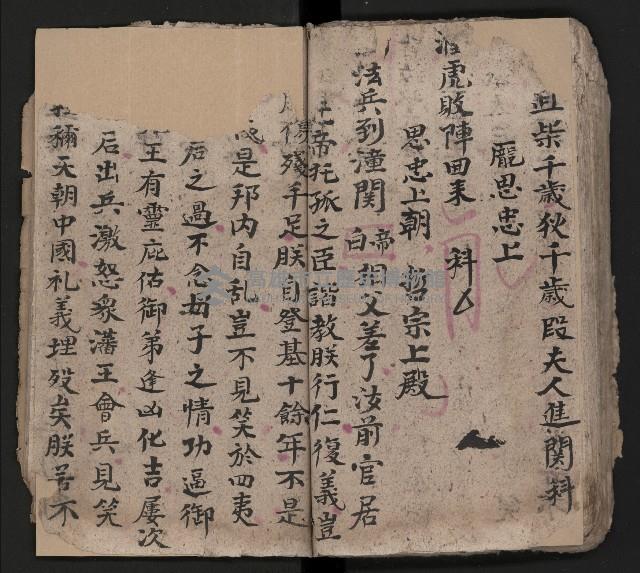 柴千歲狄千歲段夫人進関科
龐思忠上
虎敗陣回来 科
思忠上朝 哲宗上殿
法兵到潼関 白帝 祖父差了汝前官居
帝托孤之臣諳教朕行仁復義豈
傷殘手足朕自登基十餘年不是
是邦內自乱豈不見笑於四夷
后之過不念奶子之情功逼御
王有靈庇佑御弟逢凶化吉屢次
后出兵激怒衆藩王會兵見笑
稱天朝中國礼義埋歿矣朕若不
高雄市立歷史博物館